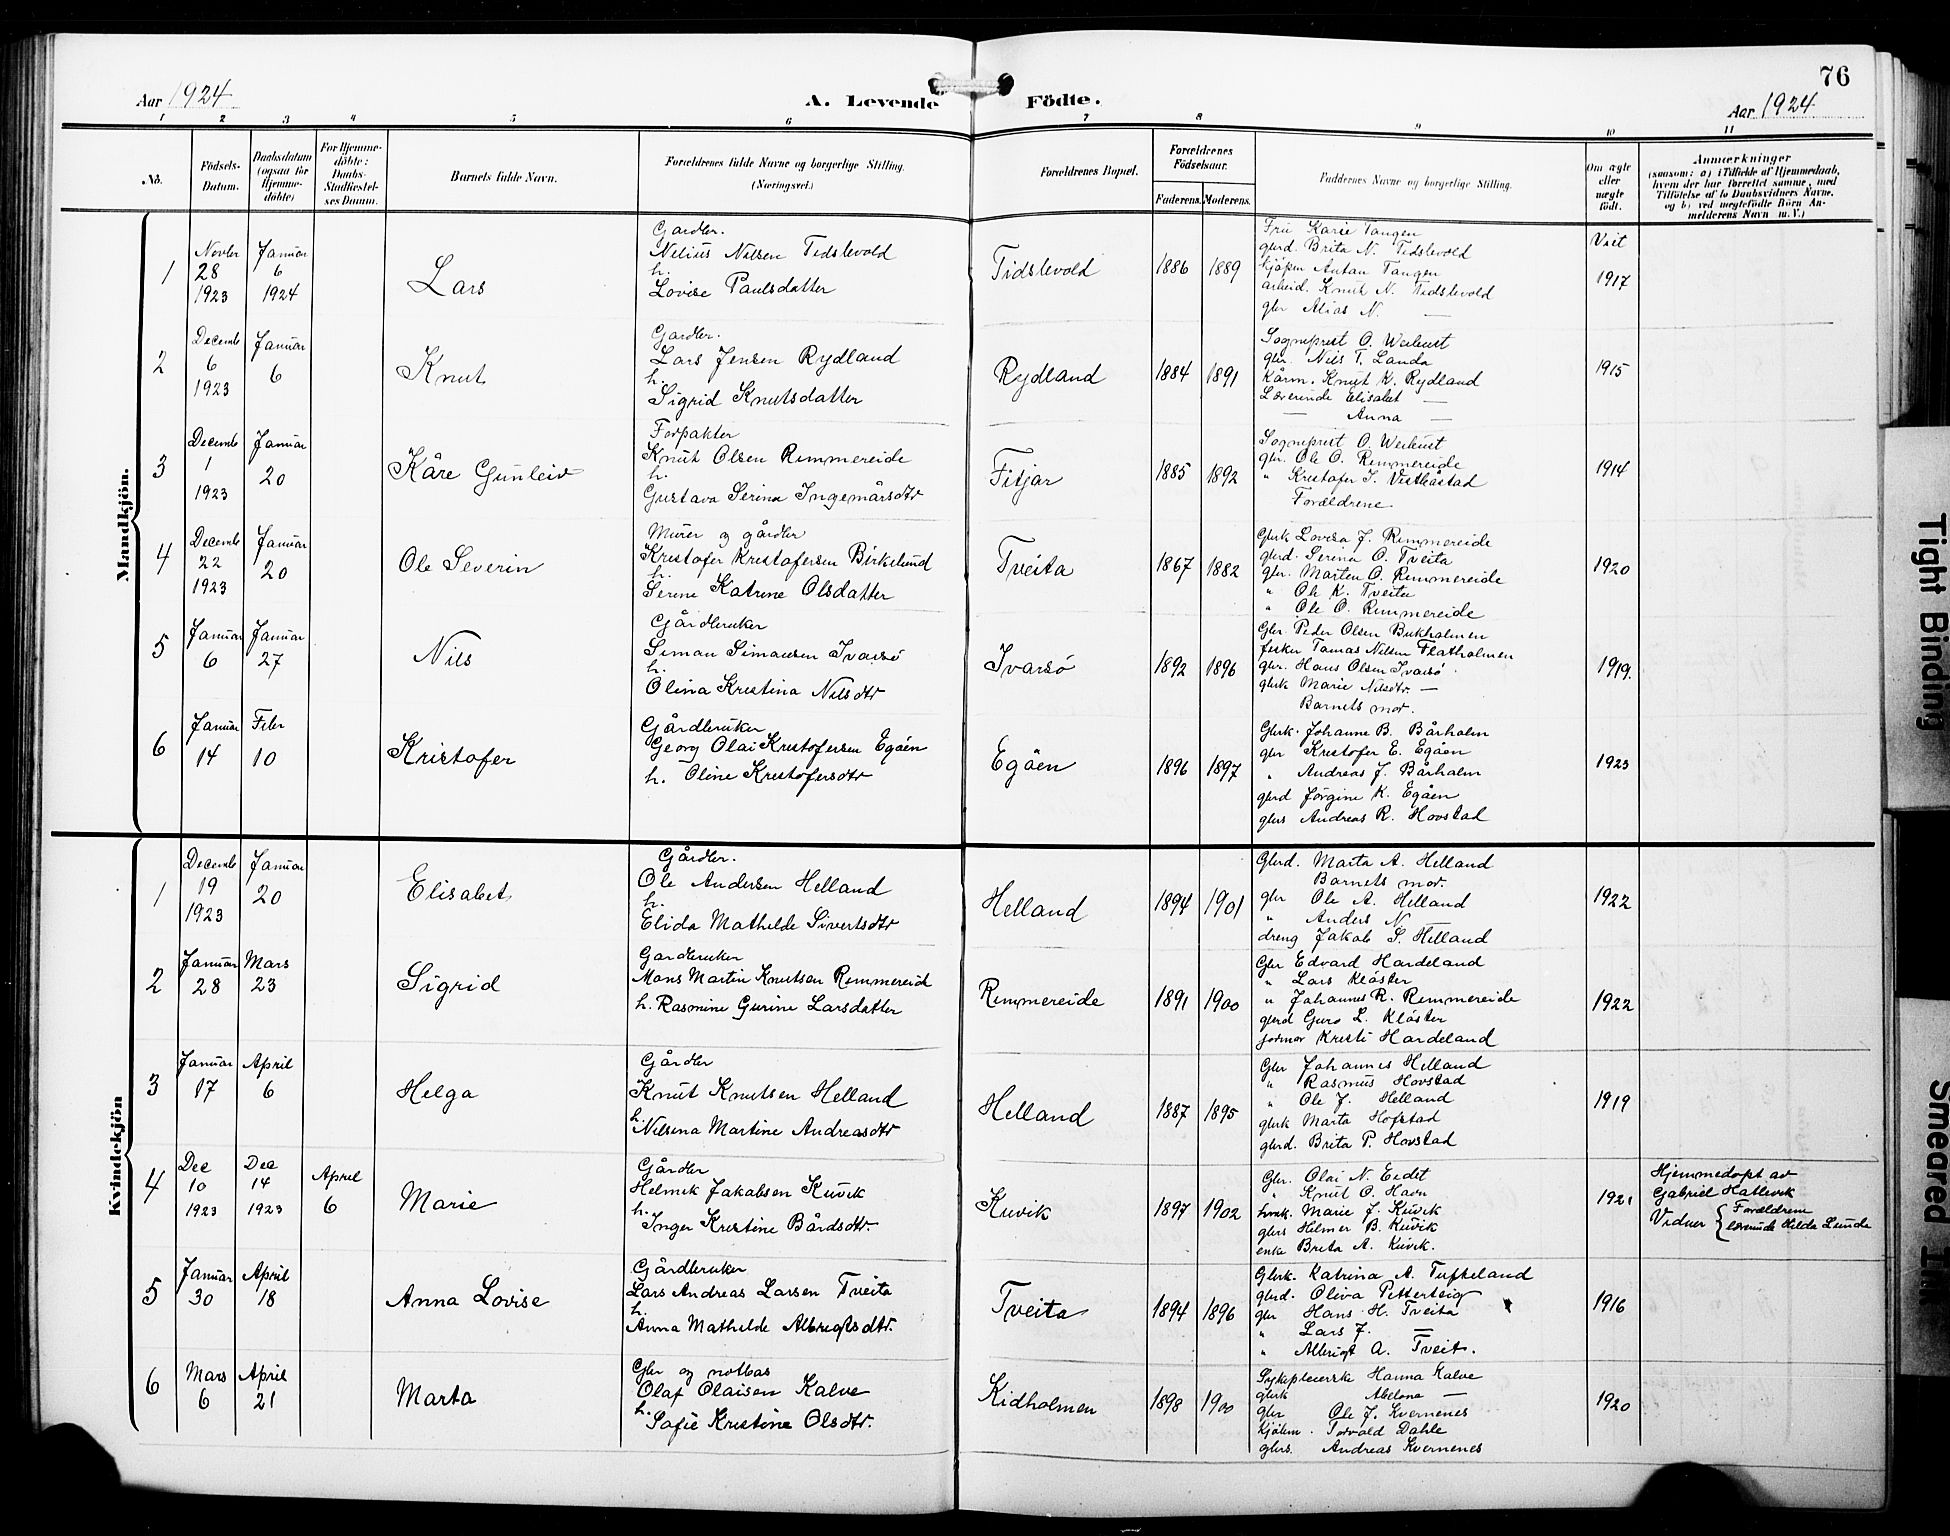 76
Aar 1924
A. Levende Födte.
Aar 1924
1 2 3 4 5 6 7 8 9 10 11
No.
Födsels-Datum.
Daabsdatum (ogsaa for Hjemme-döbte)
For Hjemme-döbte: Daabs-Stadfæstel-ses Datum.
Barnets fulde Navn.
Forældrenes fulde Navne og borgerlige Stilling. (Næringsvei.)
Forældrenes Bopæl.
Forældrenes Födselsaar.
Faderens. Moderens.
Faddernes Navne og borgerlige Stilling.
Om ægte eller uægte födt.
Anmærkninger
(saasom: a) i Tilfælde af Hjemmedaab,
hvem der har forrettet samme, med
Tilföielse af to Daabsvidners Navne,
og b) ved uægtefödte Börn An-
melderens Navn m. V.)
Mandkjön.
1
Novbr 28 1923
Januar 6 1924
Lars
Gardbr.
Nelius Nilsen Tidslevold
h.
Lovise Paulsdatter
Tidslevold
1886 1889
Fru Karie Tangen
gbrd. Brita N. Tidslevold
kjøpm Antan Tangen
arbeid. Knut N. Tidslevold
gbr Alias N. —
Viet 1917
2
Decemb 6 1923
Januar 6
Knut
Gardbr.
Lars Jensen Rydland
h.
Sigrid Knutsdatter
Rydland
1884 1891
Sogneprest O. Weihust
gbr. Nils T. Landa
Kårm. Knut K. Rydland
Lærerinde Elisabet —
— Anna —
1915
3
Decemb 1 1923
Januar 20
Kåre Gunleiv
Forpakter
Knut Olsen Rimmereide
h.
Gustava Serina Ingemårsdtr
Fitjar
1885 1892
Sogneprest O. Weihust
gbr. Ole O. Rimmereide
" Kristofer J. Vestbåstad
Forældrene
1914
4
Decemb 22 1923
Januar 20
Ole Severin
Murer og gårdbr
Kristofer Kristofersen Birkelund
h.
Serine Katrine Olsdatter
Tveita
1867 1882
Gbrk Lovisa J. Rimmereide
gbrd. Serina O. Tveita
gbr. Marten O. Rimmereide
" Ole K. Tveita
" Ole O. Rimmereide
1920
5
Januar 6
Januar 27
Nils
Gårdbruker
Siman Simansen Ivarsø
h.
Olina Kristina Nilsdtr
Ivarsø
1892 1896
Gbr. Peder Olsen Bukholmen
fisker Tomas Nilsen Flatholmen
gbr. Hans Olsen Ivarsø
gbrk Marie Nilsdtr. —
Barnets mor.
1919.
6
Januar 14
Febr 10
Kristofer
Gårdbruker
Georg Olai Kristofersen Egåen
h. Oline Kristofersdtr
Egåen
1896 1897
Gbrk. Johanne B. Bårholm
gbr Kristofer E. Egåen
" Andreas J. Bårholm
gbrd Jørgine K. Egåen
gbrs Andreas R. Hovstad
1923
Kvindekjön
1
Decemb 19 1923
Januar 20
Elisabet
Gårdbr.
Ole Andersen Helland
h.
Elida Mathilde Sivertsdtr
Helland
1894 1901
Gbrd. Marta A. Helland
Barnets mor.
gbr Ole A. Helland
" Anders N —
dreng Jakob S. Helland
1922
2
Januar 28
Mars 23
Sigrid
Gardbruker
Mons Martin Knutsen Rimmereid
h. Rasmine Gurine Larsdatter
Rimmereide
1891 1900
Gbr Edvard Hardeland
" Lars Kløster
" Johannes R. Rimmereide
gbrd Guro L. Kløster
jormor Kristi Hardeland
1922
3
Januar 17
April 6
Helga
Gårdbr
Knut Knutsen Helland
h.
Nilsina Martine Andreasdtr
Helland
1887 1895
Gbr Johannes Helland
" Rasmus Hovstad
" Ole J. Helland
gbrk Marta Hofstad
gbrd. Brita P. Hovstad
1919
4
Dec 10 1923
Dec 14 1923
April 6
Marie
Gårdbr
Helmik Jakobsen Kuvik
h.
Inger Kristine Bårdsdtr.
Kuvik
1897 1902
Gbr. Olai N. Eidet
" Knut O. Havn
hvk. Marie J. Kuvik
gbrs Helmer B. Kuvik
enke Brita A. Kuvik.
1921
Hjemmedøpt av
Gabriel Hatlevik
Vidner { Forældrene
lærerinde Hilda Lunde
5
Januar 30
April 18
Anna Lovise
Gårdbruker
Lars Andreas Larsen Tveita
h.
Anna Mathilde Albregtsdtr.
Tveita
1894 1896
Gbrk. Katrina A. Tufteland
gbrd. Oliva Petterteig
gbr Hans H. Tveita
" Lars J. —
" Albrigt A. Tveit.
1916
6
Mars 6
April 21
Marta
Gbr og notbas
Olaf Olaisen Kalve
h.
Sofie Kristine Olsdtr.
Kidholmen
1898 1900
Sykepleierske Hanna Kalve
gbrk Abelone —
gbr Ole J. Kvernenes
kjølem. Torvald Dahle
gbrs. Andreas Kvernenes
1920
Tight Binding
Smeared Ink